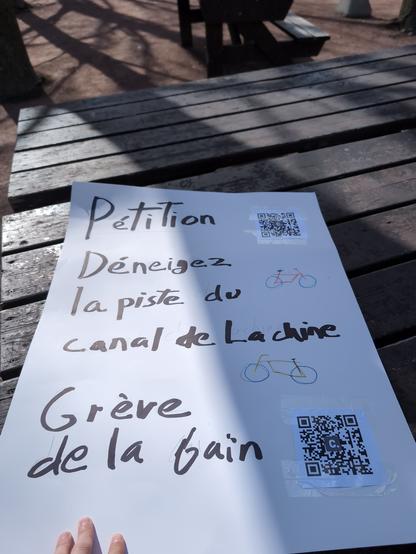 Pétition
Déneigez
la piste du
canal de Lachine
Grève
de la faim